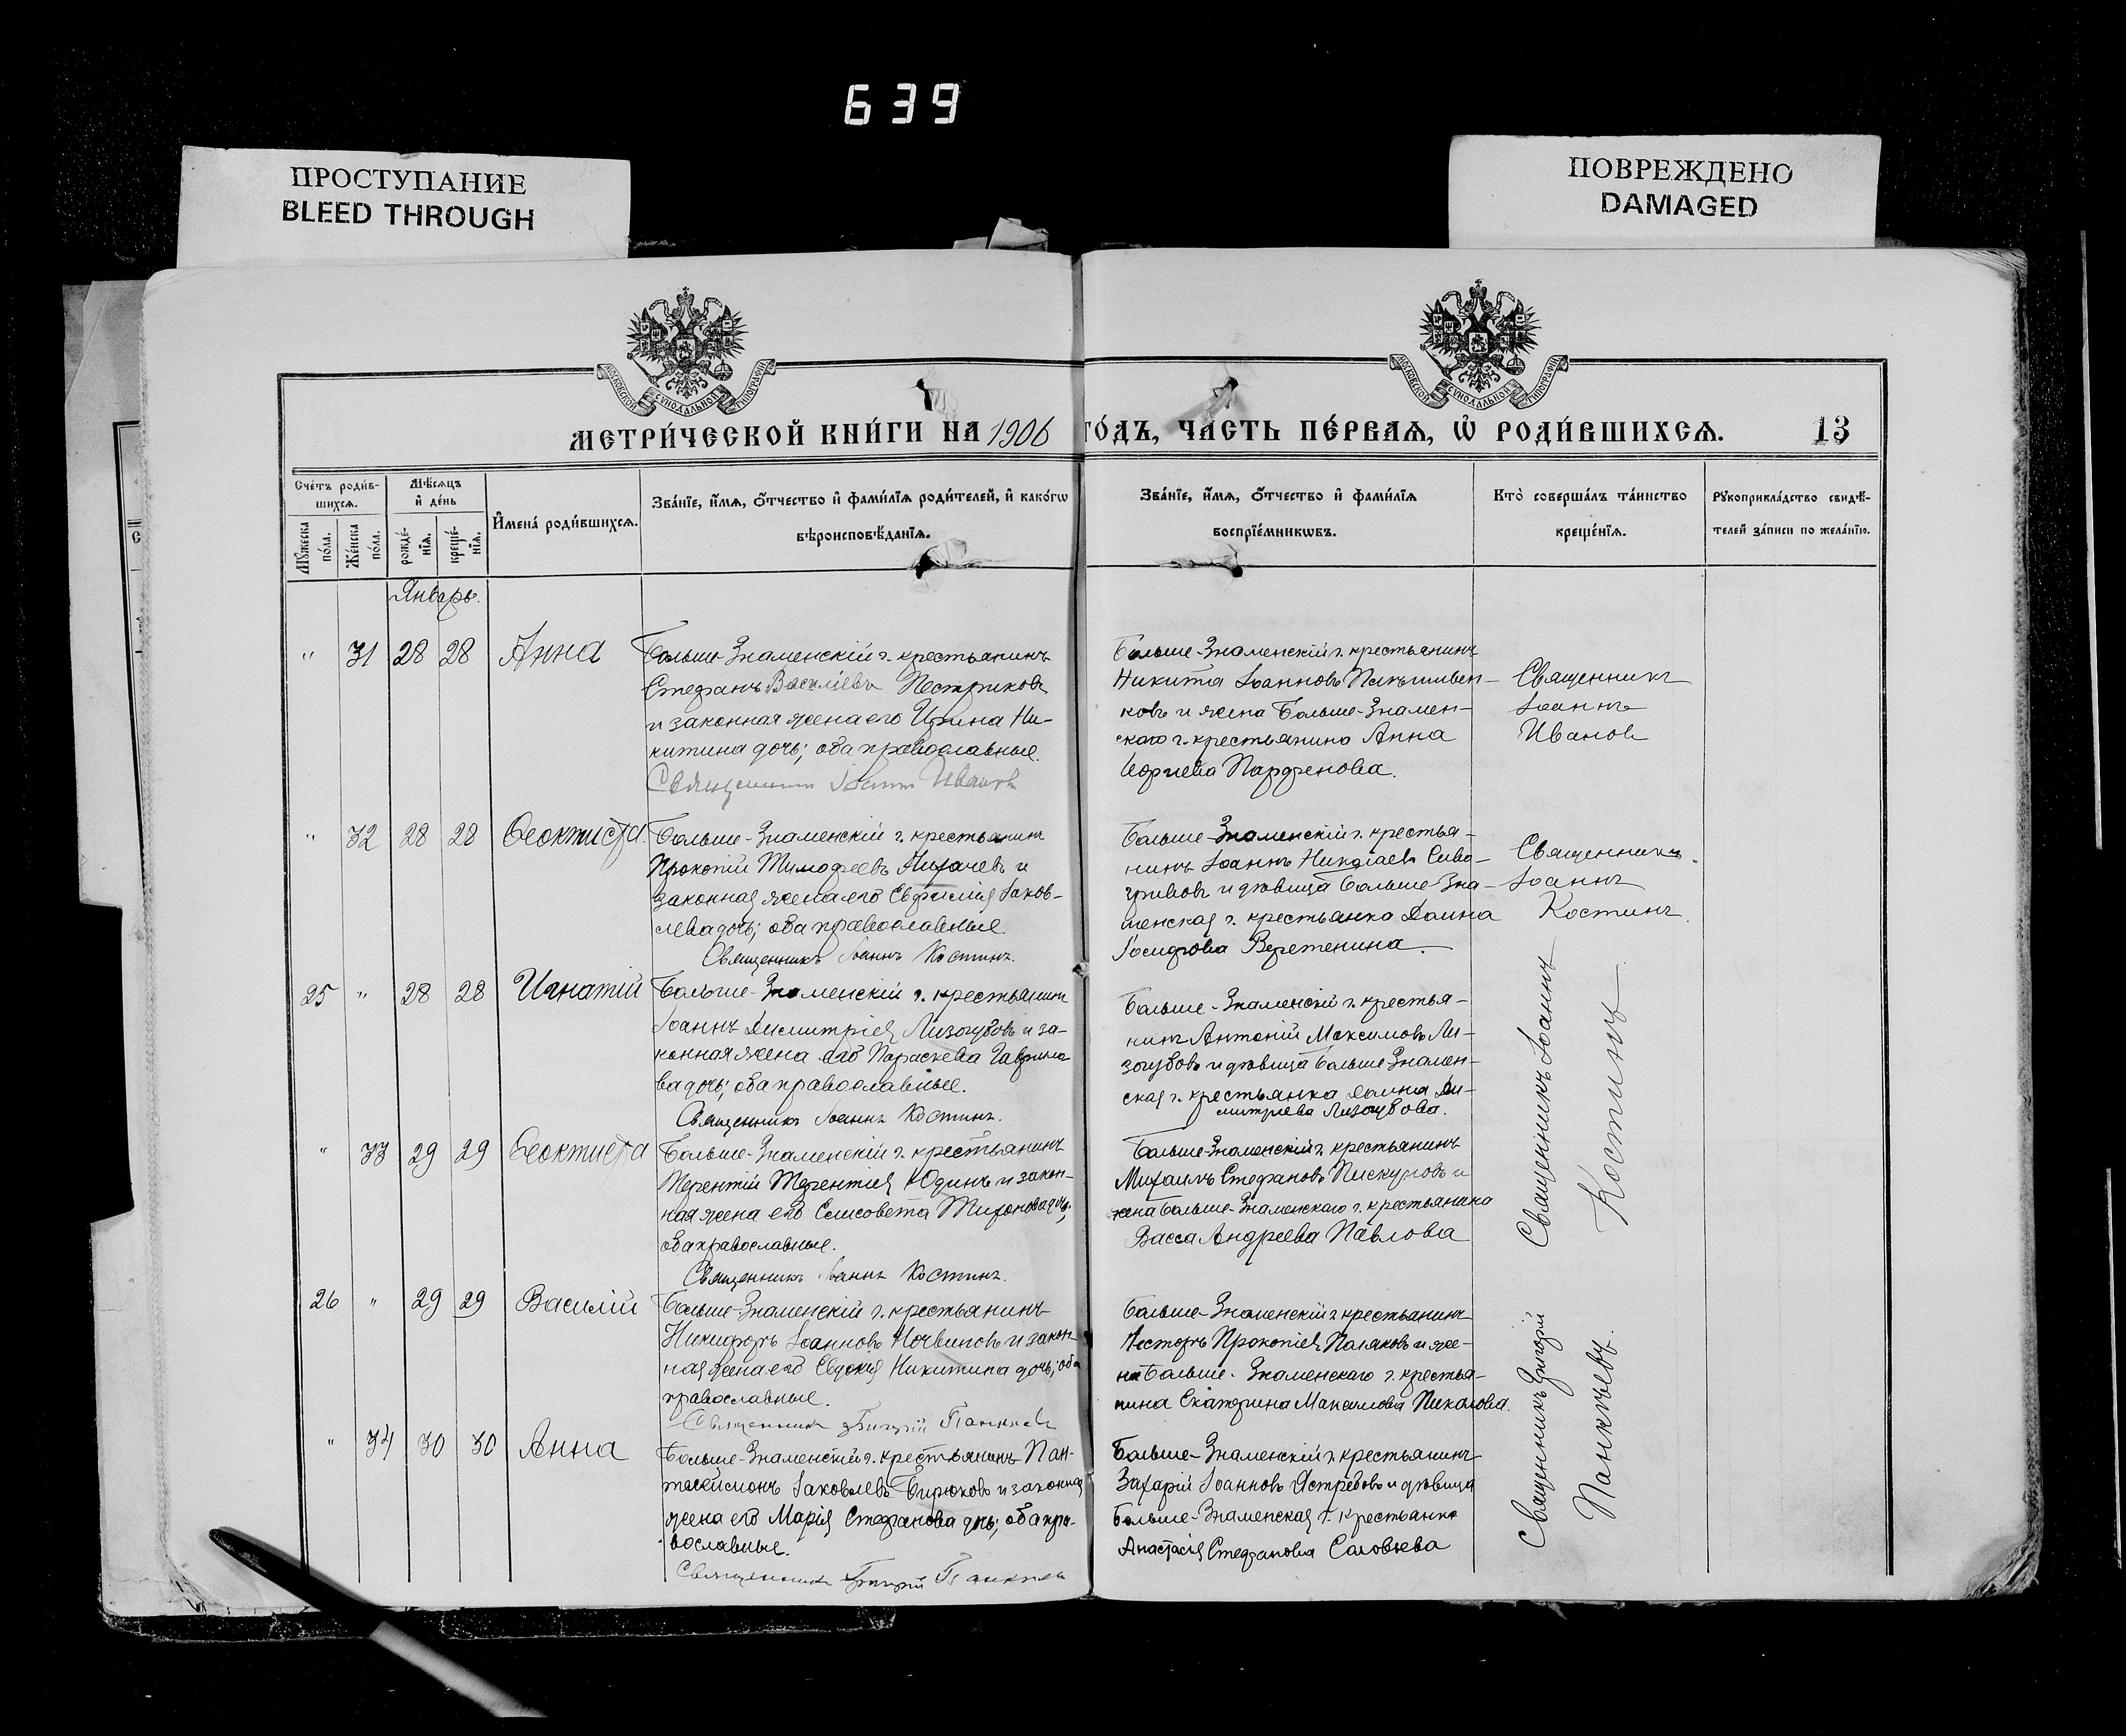 639
ПРОСТУПАНИЕ
BLEED THROUGH
ПОВРЕЖДЕНО
DAMAGED
МОСКОВСКОЙ СѴНОДАЛЬНОЙ ТИПОГРАФІИ
МОСКОВСКОЙ СѴНОДАЛЬНОЙ ТИПОГРАФІИ
МЕТРИ́ЧЕСКОЙ КНИ́ГИ НА 1906 ГО́ДЪ, ЧА́СТЬ ПЕ́РВАѦ, Ѡ҆ РОДИ́ВШИХСѦ. 13
Сче́тъ роди́в-
шихсѧ.
Мꙋ́жеска
по́ла.
Же́нска
по́ла.
Мѣ́сѧцъ
и҆ де́нь
рожде́-
нїѧ.
креще́-
нїѧ.
И҆мена̀ роди́вшихсѧ.
Зва́нїе, и҆́мѧ, ѻ҆́тчество и҆ фами́лїѧ роди́телей, и҆ како́гѡ
вѣроисповѣ́данїѧ.
Зва́нїе, и҆́мѧ, ѻ҆́тчество и҆ фами́лїѧ
воспрїе́мникѡвъ.
Кто̀ соверша́лъ та́инство
креще́нїѧ.
Рꙋкоприкла́дство свидѣ́-
телей за́писи по жела́нїю.
Январь.
" 31 28 28 Анна
Больше-Знаменскій г. крестьянинъ
Стефанъ Васильевъ Пестриковъ
и законная жена его Ирина Ни-
китина дочь; оба православные.
Священникъ Іоаннъ Ивановъ
Больше-Знаменскій г. крестьянинъ
Никита Іоанновъ
ковъ и жена Больше-Знамен-
скаго г. крестьянина Анна
Парфенова.
Священникъ
Іоаннъ
Ивановъ
" 32 28 28 Ѳеоктиста.
Больше-Знаменскій г. крестьянинъ
Прокопій Тимофеевъ Лихачевъ и
законная жена его Евфимія Іаков-
лева дочь; оба православные.
Священникъ Іоаннъ Костинъ.
Больше-Знаменскій г. крестья-
нинъ Іоаннъ Николаевъ Сиво-
гривовъ и дѣвица Больше-Зна-
менская г. крестьянка Домна
Іосифова Веретенина.
Священникъ
Іоаннъ
Костинъ.
25 " 28 28 Игнатій
Больше-Знаменскій г. крестьянинъ
Іоаннъ Димитріевъ Лизогубовъ и за-
конная жена его Параскева Гаврило-
ва дочь; оба православные.
Священникъ Іоаннъ Костинъ.
Больше-Знаменскій г. крестья-
нинъ Антоній Максимовъ Ли-
зогубовъ и дѣвица Больше-Знамен-
ская г. крестьянка Домна Ди-
митріева Лизогубова.
Священникъ Іоаннъ
Костинъ
" 33 29 29 Ѳеоктиста
Больше-Знаменскій г. крестьянинъ
Терентій Терентіев Юдинъ и закон-
ная жена его Елисавета Тихонова дочь;
оба православные.
Священникъ Іоаннъ Костинъ.
Больше-Знаменскій г. крестьянинъ
Михаилъ Стефановъ Пискуновъ и
жена Больше-Знаменскаго г. крестьянина
Васса Андреева Павлова
26 " 29 29 Василій
Больше-Знаменскій г. крестьянинъ
Никифоръ Іоанновъ и закон-
ная жена его Евдокія Никитина дочь; оба
православные.
Священникъ Григорій Панкѣевъ
Больше-Знаменскій г. крестьянинъ
Несторъ Прокопіев Поляковъ и же-
на Больше-Знаменскаго г. крестья-
нина Екатерина Максимова Пикалова.
Священникъ Григорій
Панкѣевъ.
" 34 30 30 Анна
Больше-Знаменскій г. крестьянинъ Пан-
телеймонъ Іаковлевъ Бирюковъ и законная
жена его Марія Стефанова дочь; оба пра-
вославные.
Священникъ Григорій Панкѣевъ
Больше-Знаменскій г. крестьянинъ
Захарій Іоанновъ Ястребовъ и дѣвица
Больше-Знаменская г. крестьянка
Анастасія Стефанова Соловьева